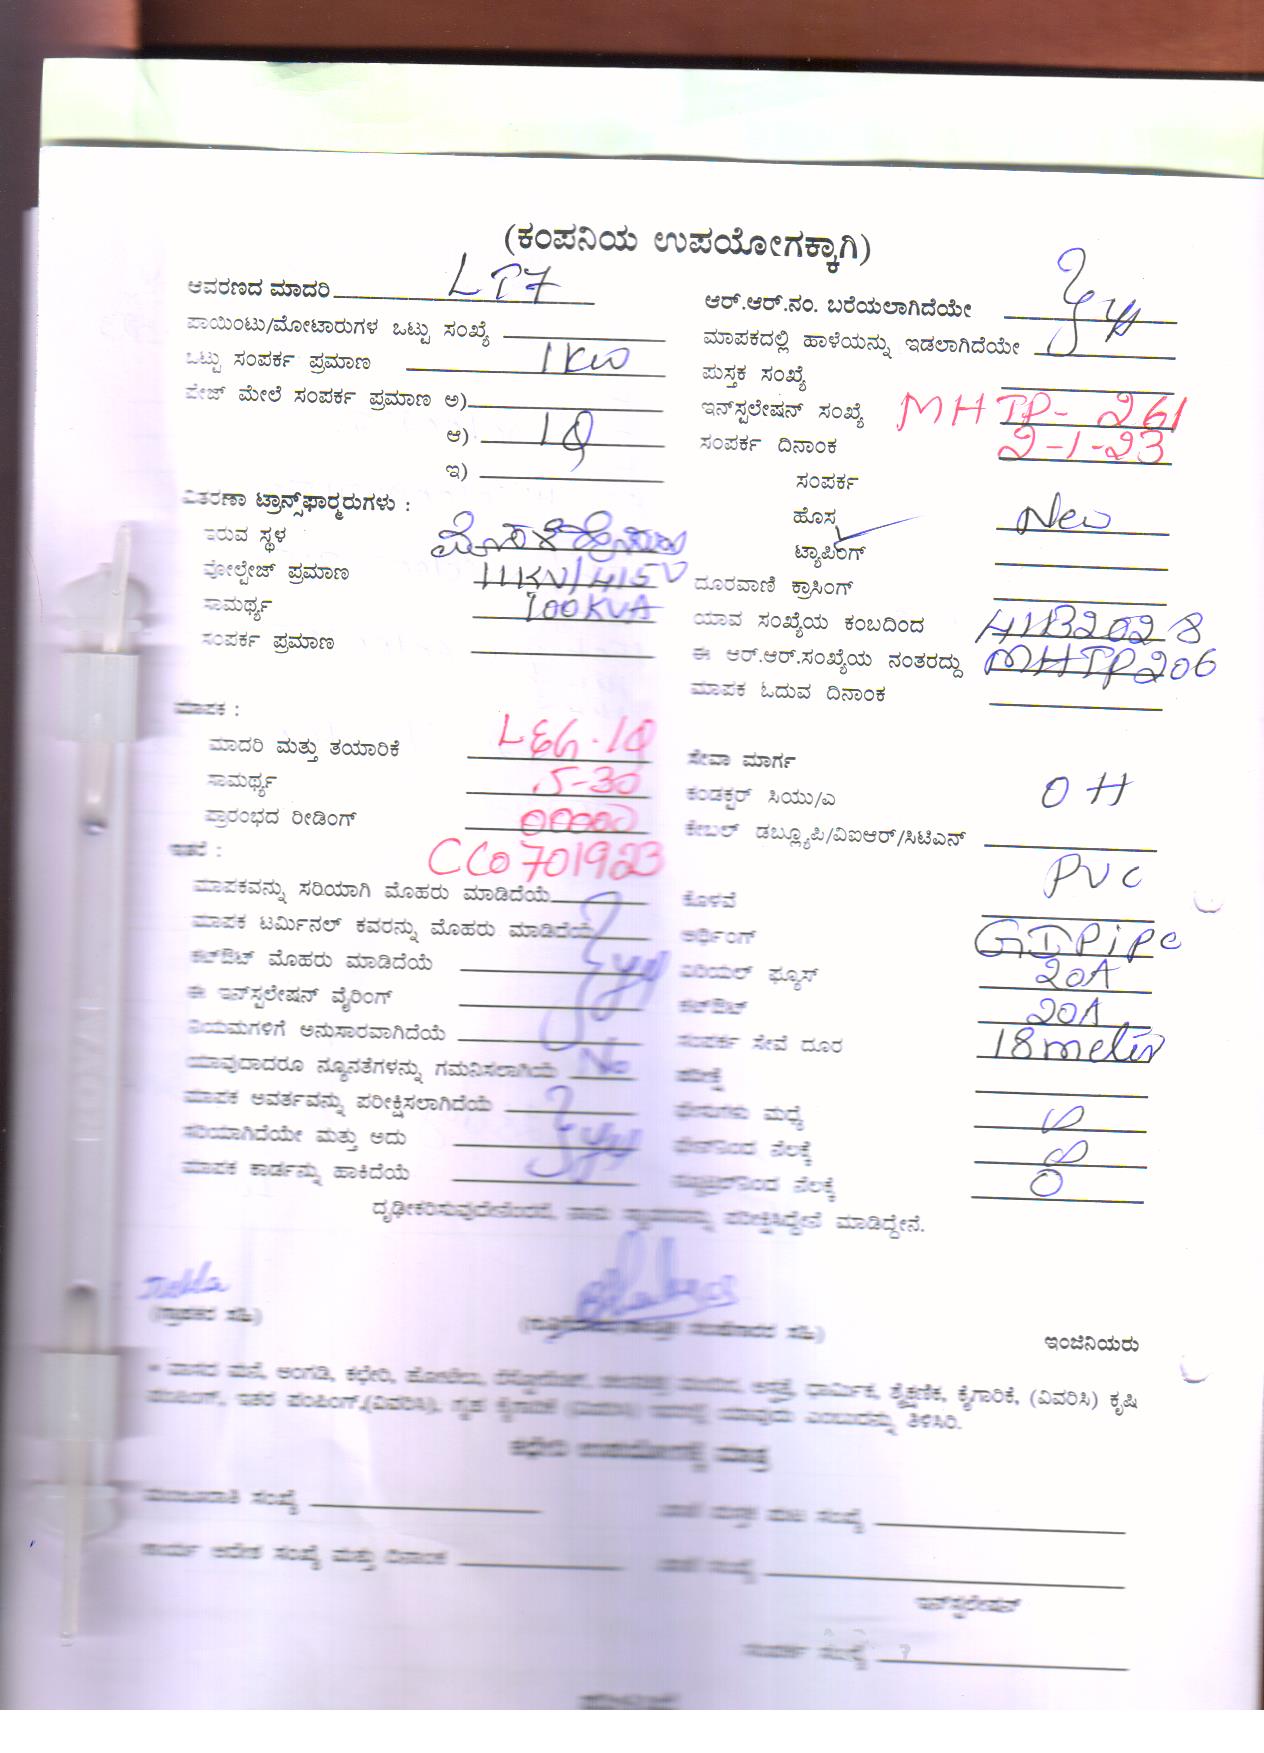 (ಕಂಪನಿಯ ಉಪಯೋಗಕ್ಕಾಗಿ)
ಆವರಣದ ಮಾದರಿ LT7
ಪಾಯಿಂಟು/ಮೋಟಾರುಗಳ ಒಟ್ಟು ಸಂಖ್ಯೆ
ಒಟ್ಟು ಸಂಪರ್ಕ ಪ್ರಮಾಣ 1KW
ಪೇಜ್ ಮೇಲೆ ಸಂಪರ್ಕ ಪ್ರಮಾಣ ಅ)
ಆ) 1Φ
ಇ)
ವಿತರಣಾ ಟ್ರಾನ್ಸ್‌ಫಾರ್ಮರುಗಳು :
ಇರುವ ಸ್ಥಳ
ವೋಲ್ಟೇಜ್ ಪ್ರಮಾಣ 11KV/415V
ಸಾಮರ್ಥ್ಯ 100KVA
ಸಂಪರ್ಕ ಪ್ರಮಾಣ
ಮಾಪಕ :
ಮಾದರಿ ಮತ್ತು ತಯಾರಿಕೆ L&G-1Φ
ಸಾಮರ್ಥ್ಯ 5-30
ಪ್ರಾರಂಭದ ರೀಡಿಂಗ್ 00000
ಇತರೆ : CC0701923
ಮಾಪಕವನ್ನು ಸರಿಯಾಗಿ ಮೊಹರು ಮಾಡಿದೆಯೆ
ಮಾಪಕ ಟರ್ಮಿನಲ್ ಕವರನ್ನು ಮೊಹರು ಮಾಡಿದೆಯೆ
ಕಟ್‌ಔಟ್ ಮೊಹರು ಮಾಡಿದೆಯೆ
ಈ ಇನ್‌ಸ್ಟಲೇಷನ್ ವೈರಿಂಗ್
ನಿಯಮಗಳಿಗೆ ಅನುಸಾರವಾಗಿದೆಯೆ
ಯಾವುದಾದರೂ ನ್ಯೂನತೆಗಳನ್ನು ಗಮನಿಸಲಾಗಿಯೆ No
ಮಾಪಕ ಅವರ್ತವನ್ನು ಪರೀಕ್ಷಿಸಲಾಗಿದೆಯೆ
ಸರಿಯಾಗಿದೆಯೇ ಮತ್ತು ಅದು
ಮಾಪಕ ಕಾರ್ಡನ್ನು ಹಾಕಿದೆಯೆ
ಆರ್.ಆರ್.ನಂ. ಬರೆಯಲಾಗಿದೆಯೇ
ಮಾಪಕದಲ್ಲಿ ಹಾಳೆಯನ್ನು ಇಡಲಾಗಿದೆಯೇ
ಪುಸ್ತಕ ಸಂಖ್ಯೆ
ಇನ್‌ಸ್ಟಲೇಷನ್ ಸಂಖ್ಯೆ MHTP-261
ಸಂಪರ್ಕ ದಿನಾಂಕ 2-1-23
ಸಂಪರ್ಕ
ಹೊಸ New
ಟ್ಯಾಪಿಂಗ್
ದೂರವಾಣಿ ಕ್ರಾಸಿಂಗ್
ಯಾವ ಸಂಖ್ಯೆಯ ಕಂಬದಿಂದ 41B2028
ಈ ಆರ್.ಆರ್.ಸಂಖ್ಯೆಯ ನಂತರದ್ದು MHTP206
ಮಾಪಕ ಓದುವ ದಿನಾಂಕ
ಸೇವಾ ಮಾರ್ಗ
ಕಂಡಕ್ಟರ್ ಸಿಯು/ಎ OH
ಕೇಬಲ್ ಡಬ್ಲ್ಯೂಪಿ/ವಿಐಆರ್/ಸಿಟಿಎನ್
ಕೊಳವೆ PVC
ಅರ್ಥಿಂಗ್ GI Pipe
ಏರಿಯಲ್ ಫ್ಯೂಸ್ 20A
ಕಟ್‌ಔಟ್ 20A
ಸಂಪರ್ಕ ಸೇವೆ ದೂರ 18 meter
ಪರೀಕ್ಷೆ
ಫೇಸುಗಳು ಮಧ್ಯೆ
ಫೇಸ್‌ನಿಂದ ನೆಲಕ್ಕೆ
ನ್ಯೂಟ್ರಲ್‌ನಿಂದ ನೆಲಕ್ಕೆ 0
ದೃಢೀಕರಿಸುವುದೇನೆಂದರೆ, ನಾನು ಪರೀಕ್ಷಿಸಿದ್ದೇನೆ ಮಾಡಿದ್ದೇನೆ.
(ಗ್ರಾಹಕರ ಸಹಿ)
ಇಂಜಿನಿಯರು
* ವಾಸದ ಮನೆ, ಅಂಗಡಿ, ಕಛೇರಿ, ಹೋಟೆಲು, ಆಸ್ಪತ್ರೆ, ಧಾರ್ಮಿಕ, ಶೈಕ್ಷಣಿಕ, ಕೈಗಾರಿಕೆ, (ವಿವರಿಸಿ) ಕೃಷಿ
ಪಂಪಿಂಗ್, ಇತರ ಪಂಪಿಂಗ್,(ವಿವರಿಸಿ), ಗೃಹ ಕೈಗಾರಿಕೆ (ವಿವರಿಸಿ) ಯಾವುದು ಎಂಬುದನ್ನು ತಿಳಿಸಿರಿ.
ಕಛೇರಿ ಉಪಯೋಗಕ್ಕೆ ಮಾತ್ರ
ಮಂಜೂರಾತಿ ಸಂಖ್ಯೆ
ಕಾರ್ಯ ಆದೇಶ ಸಂಖ್ಯೆ ಮತ್ತು ದಿನಾಂಕ
ಇನ್‌ಸ್ಟಲೇಷನ್
ಸಂಪರ್ಕ ಸಂಖ್ಯೆ